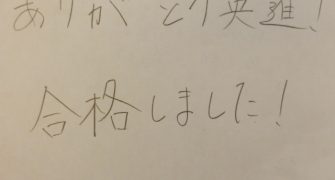 ありがとう英進!
合格しました!